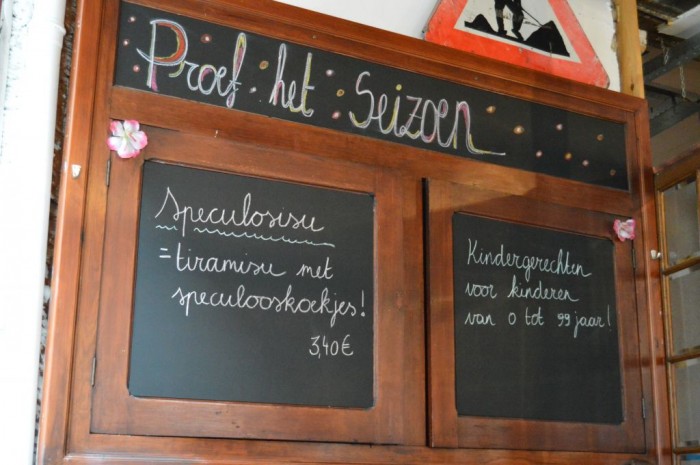 Proef het Seizoen
Speculosisu
= tiramisu met
speculooskoekjes!
3,40€
Kindergerechten
voor kinderen
van 0 tot 99 jaar!